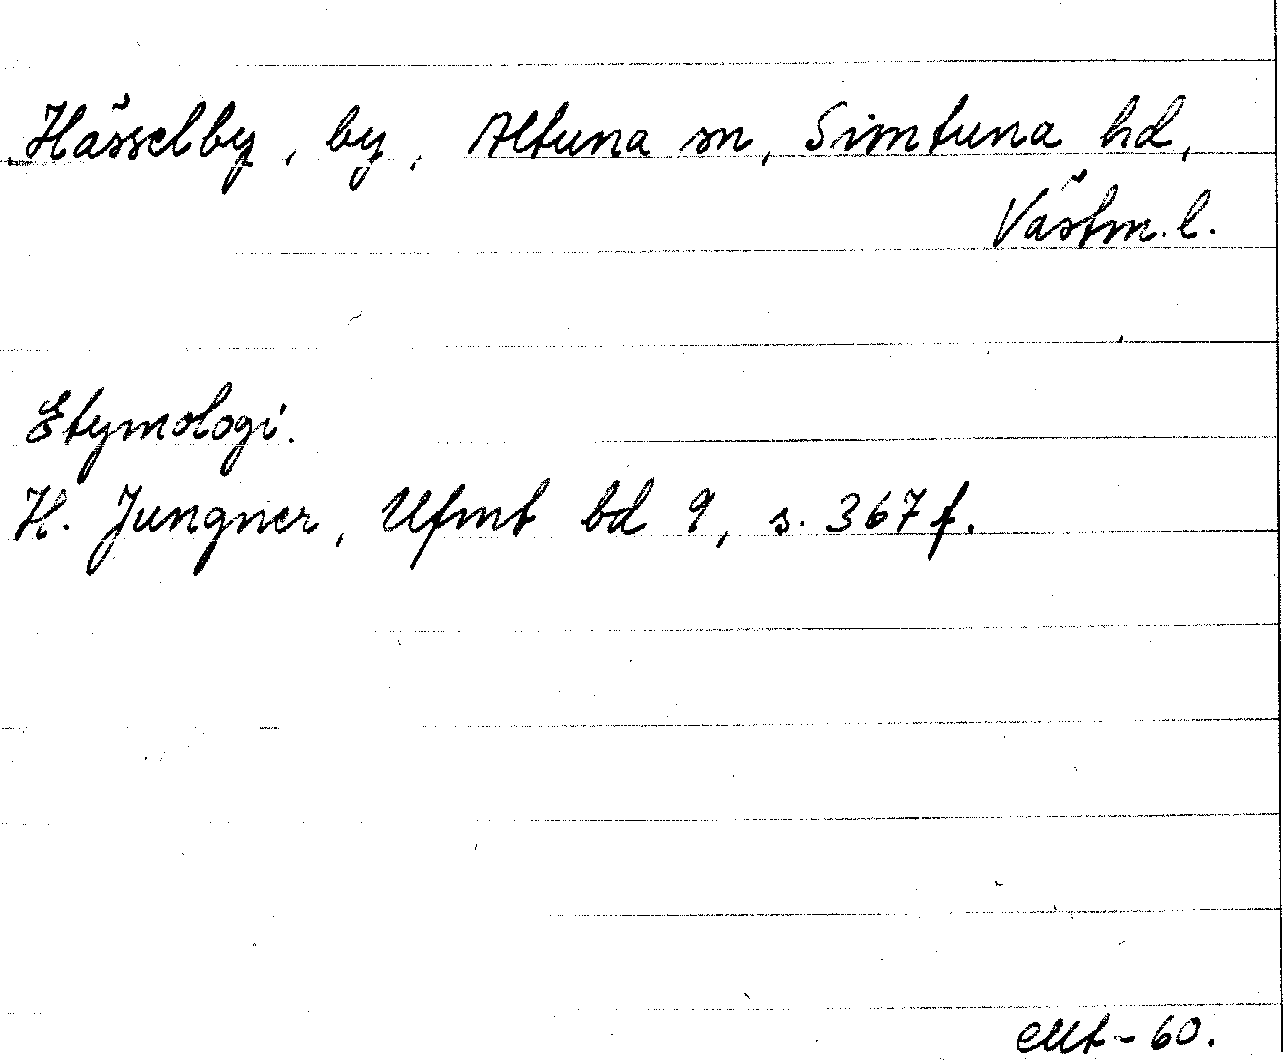 Hässelby, by, Altuna sn, Simtuna hd,
Västm. l.
Etymologi.
H. Jungner, Ufmt bd 9, s. 367 f.
60.